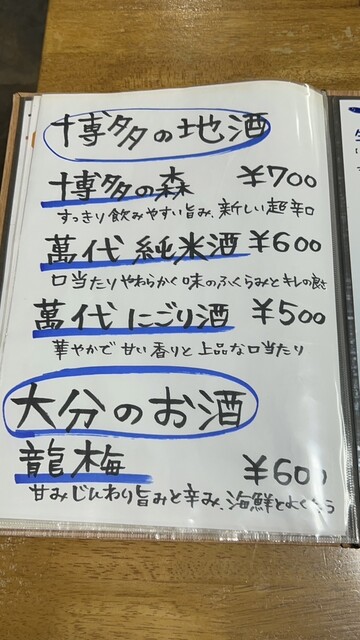 博多の地酒
博多の森 ¥700
すっきり飲みやすい旨み、新しい超辛口
萬代 純米酒 ¥600
口当たりやわらかく味のふくらみとキレの良さ
萬代 にごり酒 ¥500
華やかで甘い香りと上品な口当たり
大分のお酒
龍梅 ¥600
甘みじんわり旨みと辛み、海鮮とよく合う